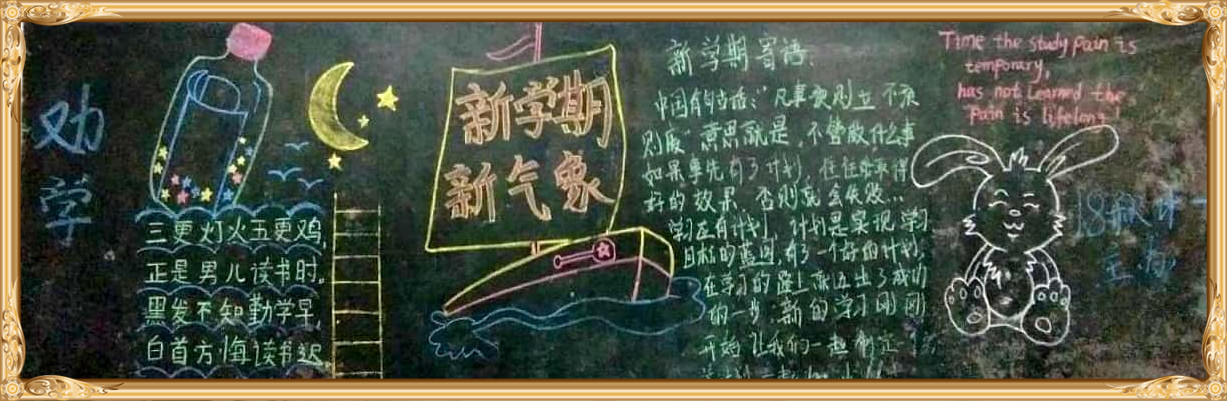 劝学
三更灯火五更鸡,
正是男儿读书时,
黑发不知勤学早,
白首方悔读书迟
新学期
新气象
新学期寄语:
中国有句古话:"凡事预则立 不预
则废"意思就是,不管做什么事
如果事先有了计划,往往会取得
好的效果,否则就会失败..
学习在有计划,计划是实现学习
目标的蓝图,有了一个好的计划,
在学习的路上就迈出了成功
的一步,新的学习刚刚
开始 让我们一起制定
Time the study pain is
temporary,
has not learned the
pain is lifelong!
18级
主办